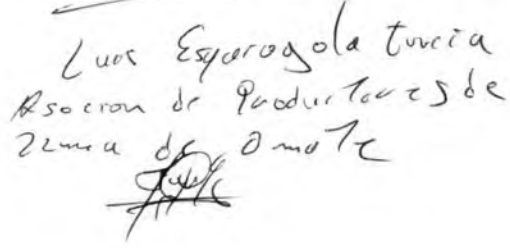 Luis Esparagola Turcia
Asocion de Productores de
de Omate